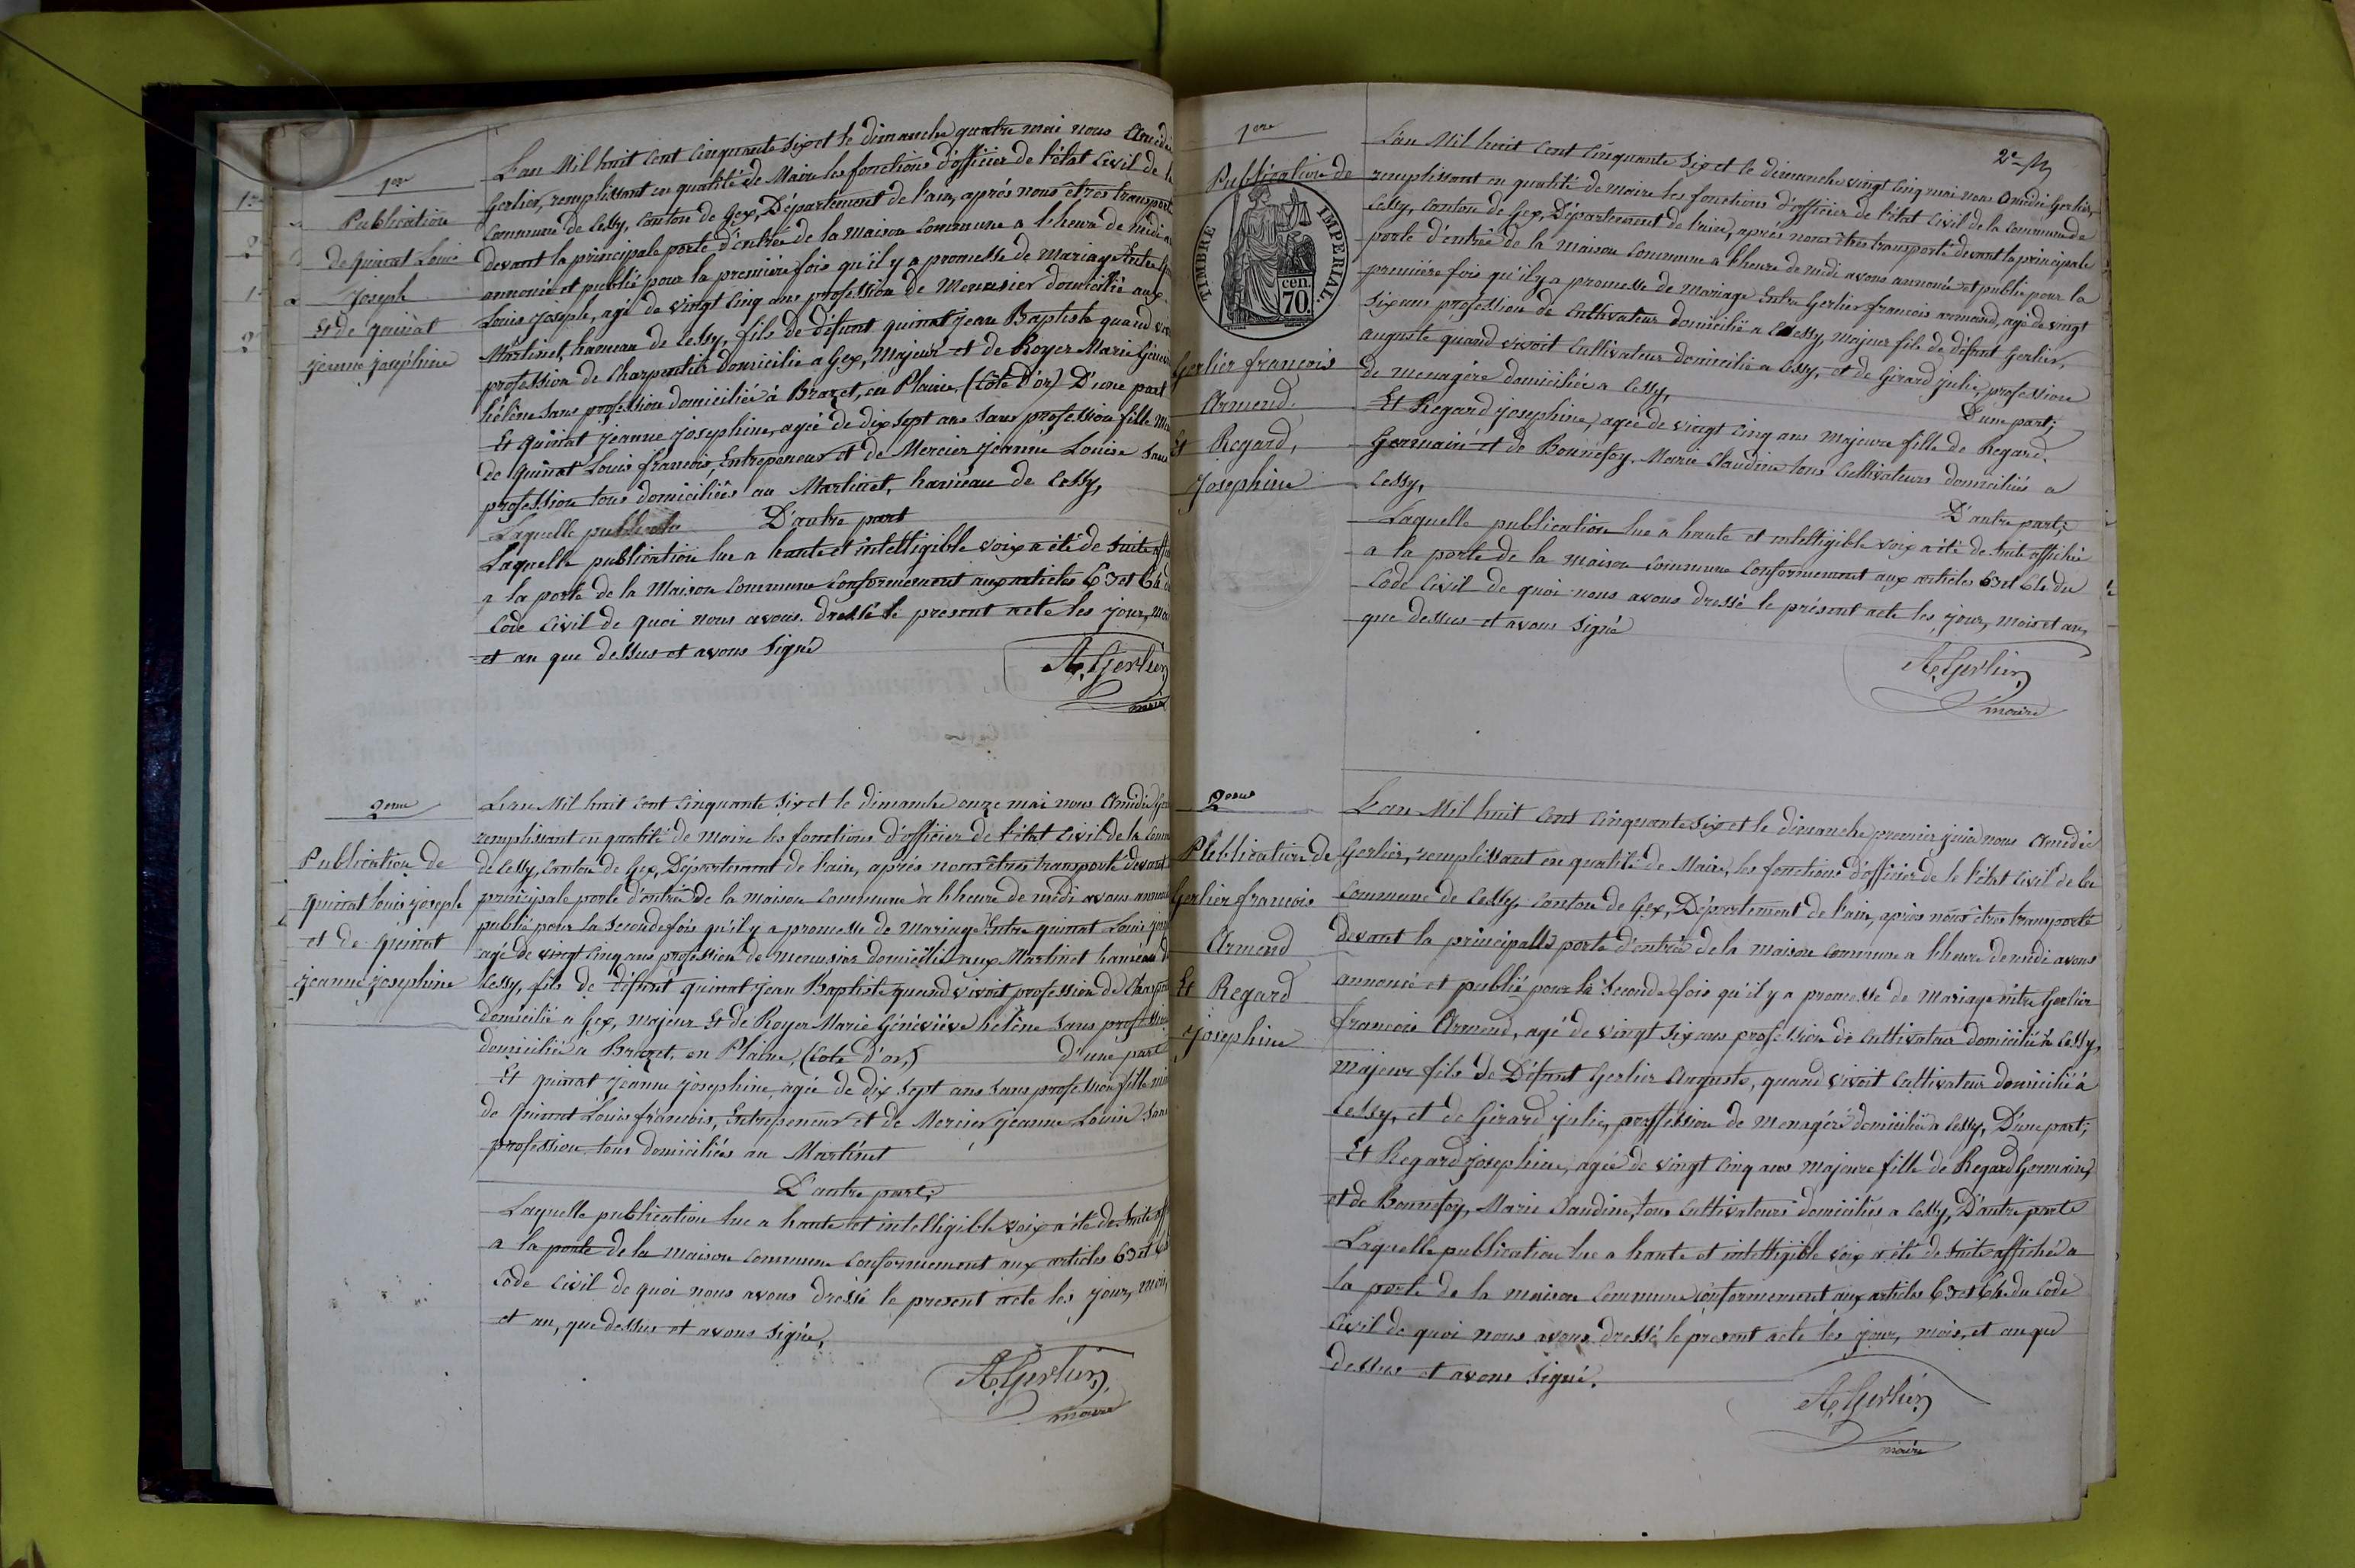 1ere
Publication
de quinat Louis
Joseph
Et de quinat
jeanne joséphine
L'an Mil huit Cent Cinquante Six et le dimanche quatre mai nous Amédé
Gerlier, remplissant en qualité de Maire les fonctions d'officier de l'état Civil de la
Commune de Cessy, Canton de Gex, Département de l'ain, après nous être transport
devant la principale porte d'entrée de la maison Commune a l'heure de midi
annoncé et publié pour la premiére fois qu'il y a promesse de Mariage Entre
Louis joseph, agé de vingt Cinq ans profession de Menuisier domicilié aux
Martinet, hameau de Cessy, fils de défunt quinat jean Baptiste quand
profession de Charpentier domicilié a Gex, Majeur et de Royer Marie
hélène Sans profession domiciliée à Brazet, en Plaine, (Côte d'or) D'une part
Et quinat jeanne josephine, agée de dix sept ans Sans profession fille
de quinat Louis francois, Entrepeneur et de Mercier jeanne Louise Sans
profession tous domiciliés au Martinet, hameau de Cessy,
Laquelle D'autre part
Laquelle publication lue a haute et intelligible voix a été de Suite
a la porte de la Maison Commune Conformement aux articles 63 et 64
Code Civil de quoi nous avons dressé le present acte les jour,
et an que dessus et avons Signé
A. Gerlier
maire
2eme
Publication de
quinat louis joseph
et de quinat
jeanne josephine
L'an Mil huit Cent Cinquante Six et le dimanche onze mai nous Amédé
remplissant en qualité de maire les fonctions d'officier de l'état Civil de la
de Cessy, Canton de Gex, Département de l'ain, après nous être transporté devant
principale porte d'entrée de la maison Commune à l'heure de midi avons
publié pour la Seconde fois qu'il y a promesse de mariage Entre quinat Louis
agé de vingt Cinq ans profession de menuisier domicilié aux Martinet hameau
Cessy, fils de défunt quinat jean Baptiste quand vivoit profession de
domicilié a Gex, majeur Et de Royer Marie Généviève hélène Sans
domicilié a Brazet, en Plaine, (Cote d'or,) d'une part
Et quinat jeanne josephine, agée de dix sept ans Sans profession fille
de quinat Louis francois, Entrepeneur et de Mercier jeanne Louise Sans
profession tous domiciliés au Martinet
D'autre part;
Laquelle publication lue a haute et intelligible voix a été de Suite
a la porte de la maison Commune Conformement aux articles 63 et
Code Civil de quoi nous avons dressé le present acte les jour, mois,
et an, que dessus et avons Signé,
A. Gerlier
maire
1ere
Publication de
TIMBRE IMPERIAL.
cen.
70.
Gerlier francois
Armend
Et Regard,
Josephine
L'an Mil huit Cent Cinquante Six et le dimanche vingt Cinq mai nous Amédé Gerlier,
remplissant en qualité de maire les fonctions d'officier de l'état Civil de la Commune de
Cessy, Canton de Gex, Département de l'ain, après nous être transporté devant la principale
porte d'entrée de la maison Commune a l'heure de midi avons annoncé et publié pour la
premiére fois qu'il y a promesse de Mariage Entre Gerlier francois armand, agé de vingt
Six ans profession de Cultivateur domicilié a Cessy, majeur fils de défunt Gerlier,
auguste quand vivoit Cultivateur domicilié a Cessy, et de Girard julie, profession
de menagère domiciliée a Cessy,
D'une part;
Et Regard josephine, agée de vingt Cinq ans Majeure fille de Regard.
Germain et de Bonnefoy, Marie Claudine tous Cultivateurs domiciliés a
Cessy,
D'autre part;
Laquelle publication lue a haute et intelligible voix a été de Suite affiché
a la porte de la maison Commune Conformement aux articles 63 et 64 du
Code Civil de quoi nous avons dressé le présent acte les jour, mois et an,
que dessus et avons Signé
A. Gerlier
maire
2eme
Publication de
Gerlier francois
Armend
Et Regard
josephine
L'an Mil huit Cent Cinquante Six et le dimanche premier juin nous Amédé
Gerlier, remplissant en qualité de Maire, les fonctions d'officier de le l'état Civil de la
Commune de Cessy, Canton de Gex, Département de l'ain, après nous être transporté
devant la principalle porte d'entrée de la maison Commune a l'heure de midi avons
annoncé et publié pour la Seconde fois qu'il y a promesse de Mariage entre Gerlier
francois Armend, agé de vingt Six ans profession de Cultivateur domicilié à Cessy,
Majeur fils de Défunt Gerlier Auguste, quand vivoit Cultivateur domicilié à
Cessy, et de Girard julie, proffession de Menagére domiciliée a Cessy, D'une part;
Et Regard josephine, agée de vingt Cinq ans majeure fille de Regard Germain,
et de Bonnefoy, Marie Claudine, tous Cultivateurs domiciliés a Cessy, D'autre parte
Laquelle publication lue a haute et intelligible voix a été de Suite affiché a
la porte de la maison Commune Conformement aux articles 63 et 64 du Code
Civil de quoi nous avons dressé le present acte les jour, mois, et an que
dessus et avons Signé.
A. Gerlier
maire